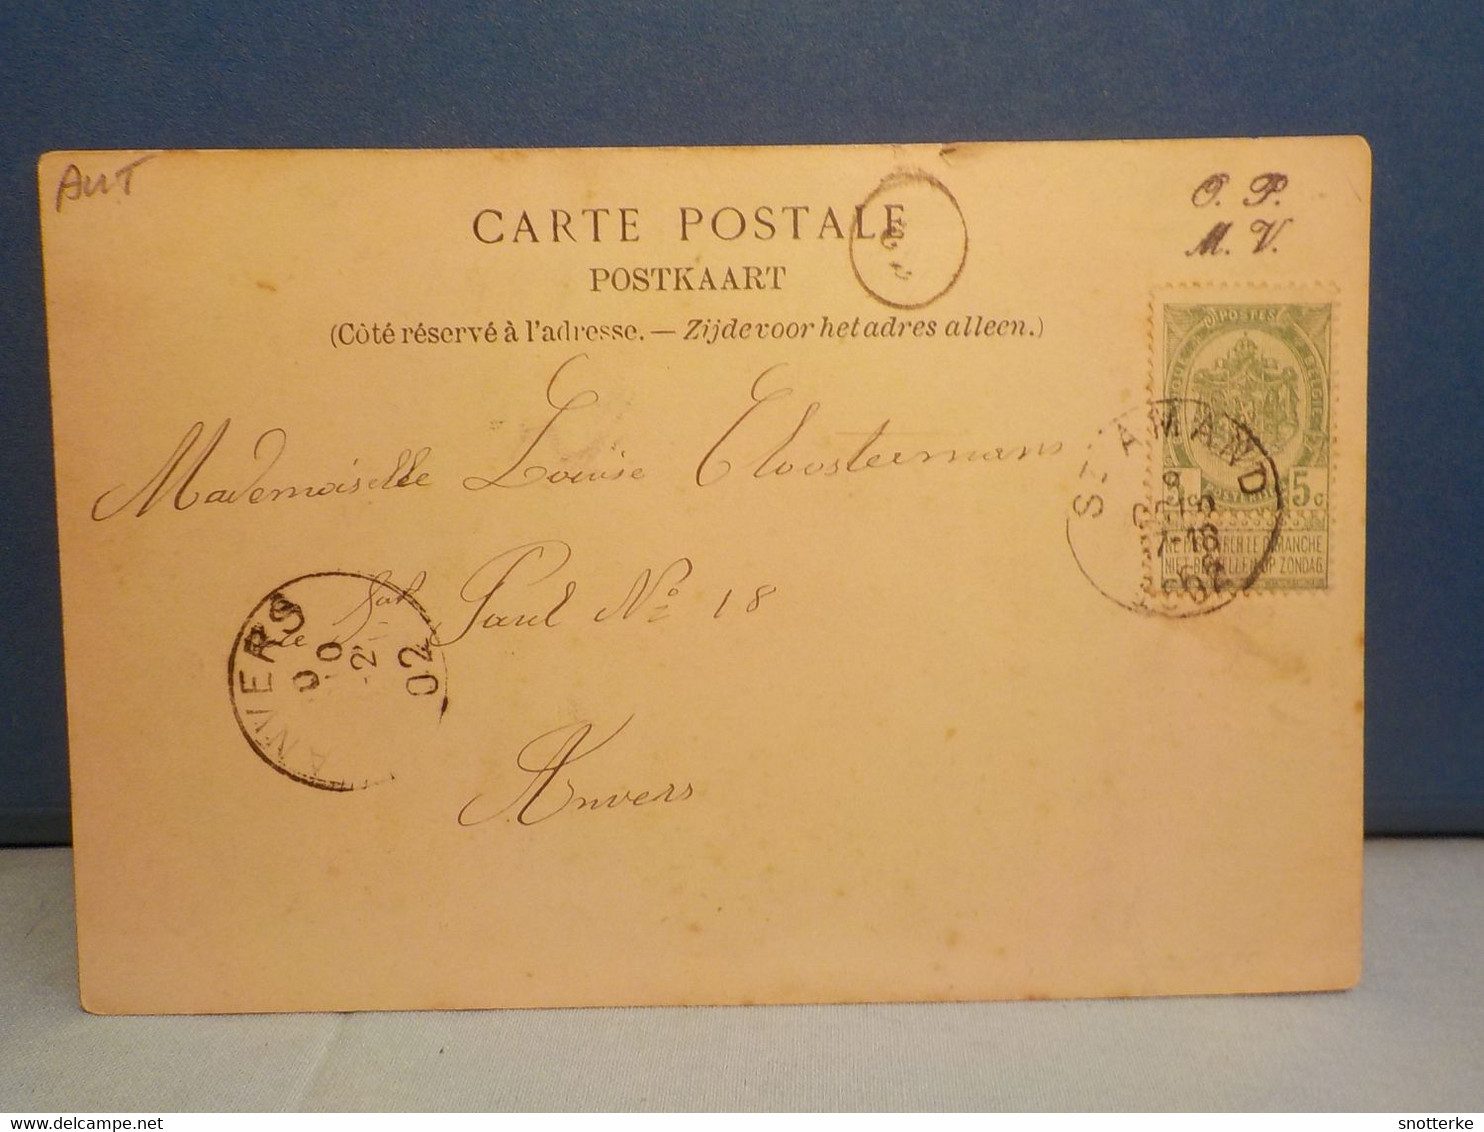 AnT
CARTE POSTALE
POSTKAART
(Côté réservé à l'adresse. — Zijde voor het adres alleen.)
O. P.
M. V.
POSTES
BELGIQUE
5c 5c
NE PAS LIVRER LE DIMANCHE
NIET BESTELLEN OP ZONDAG
ST AMAND
7-18
Mademoiselle Louise Cloostermans
Rue St Paul No 18
Anvers
ANVERS
02
delcampe.net
snotterke